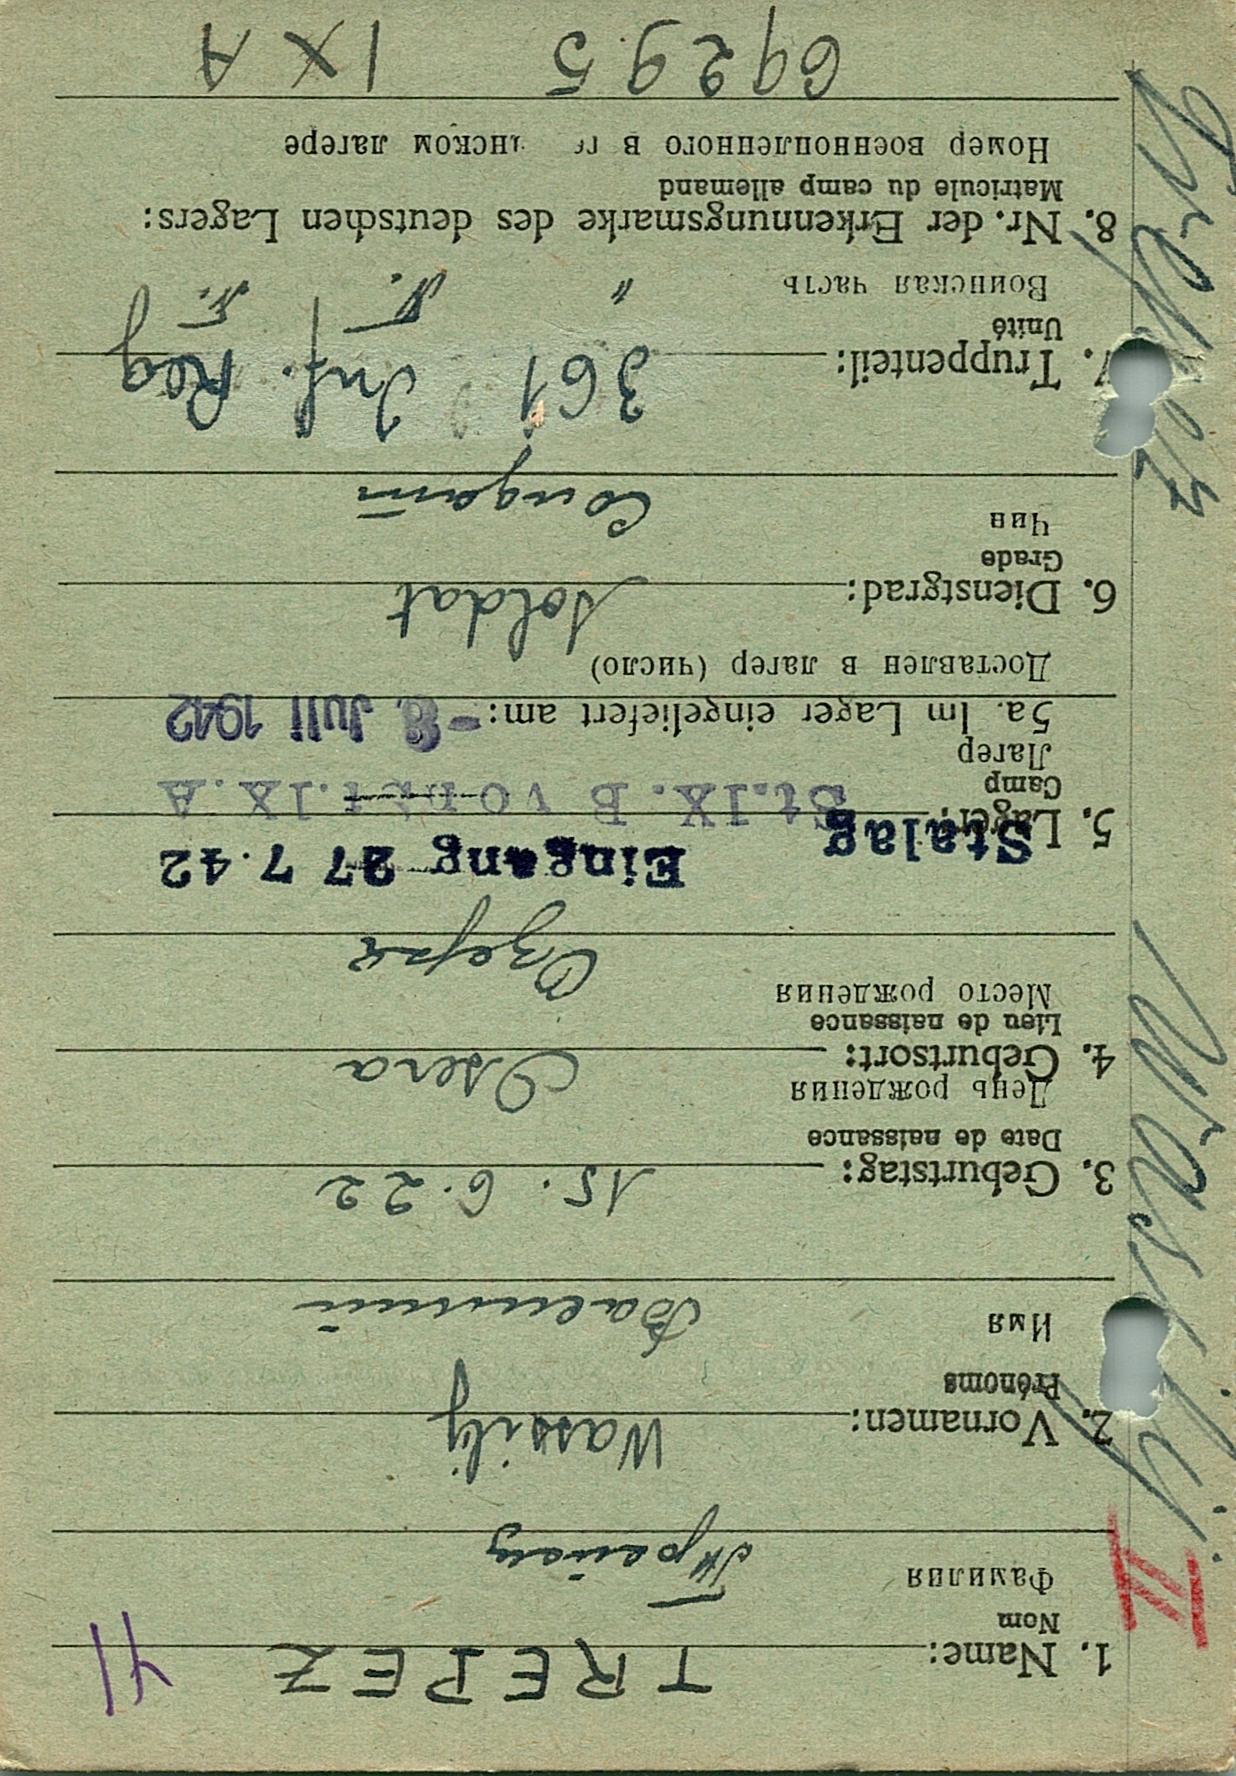 41
1. Name: TREPEZ
Nom
Фамилия
II
2. Vornamen: Wassilij
Prénoms
Имя Василий
3. Geburtstag: 15. 6. 22
Date de naissance
День рождения
4. Geburtsort: Osera
Lieu de naissance
Место рождения
Stalag Eingang 27 7.42
5. Lager: St.IX.B von St.IX.A
Camp
Лагер
5a. Im Lager eingeliefert am: -8. Juli 1942
Доставлен в лагер (число)
6. Dienstgrad: Soldat
Grade
Чин Солдат
7. Truppenteil: 361 Inf. Reg
Unité
Воинская часть " П. П.
8. Nr. der Erkennungsmarke des deutschen Lagers:
Matricule du camp allemand
Номер военнопленного в г нском лагере
69295 IX A
Wassilij